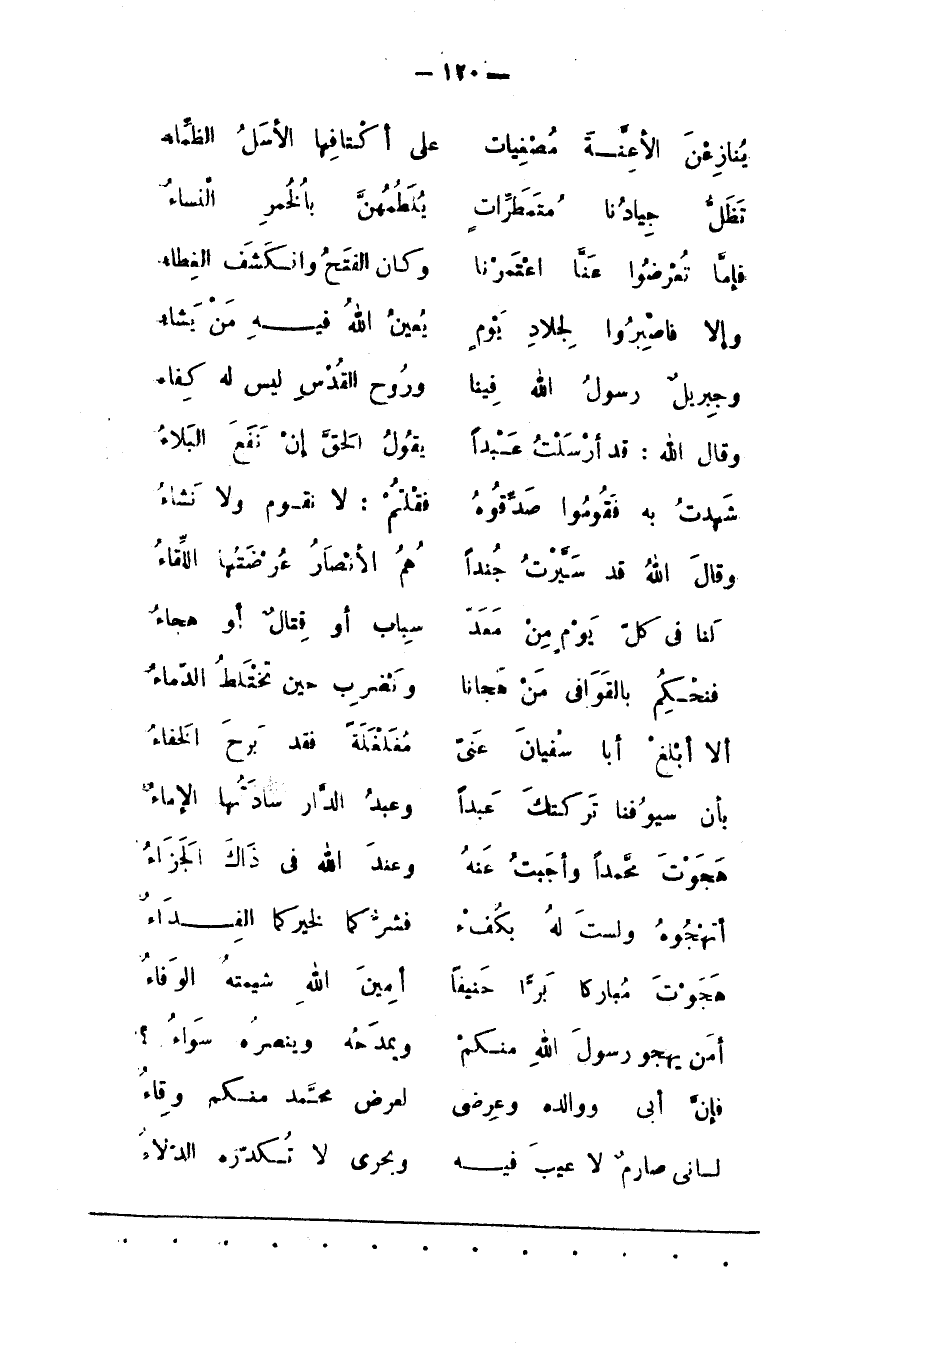 — ١٢٠ —
يُنازِعْنَ الأعِنَّـةَ مُصْغِيات على أكْتافِها الأسَلُ الظمَّاء
تَظَلُّ جِيادُنا مُتَمَطِّرَاتٍ يُلَطِّمُهُنَّ بالْخُمرِ النْساءُ
فإمَّا تُعْرِضُوا عَنَّا اعْتَمرْنا وكان الفَتْحُ وانـكَشَف الغِطاء
وإلا فاصْبِرُوا لِجلادِ يَوْمٍ يُعينُ اللهُ فيـــهِ مَنْ يَشاء
وجِبريلٌ رسولُ الله فِينا ورُوح القُدْسِ ليس له كِفاء
وقال الله : قد أرْسَلْتُ عَبْداً يقُولُ الحَقَّ إنْ نَفَعَ البَلاءُ
شَهِدتُ به فَقُومُوا صَدِّقُوهُ فقُلْتُمْ : لا نقـوم ولا نَشاءُ
وقالَ اللهُ قد سَيَّرْتُ جُنداً هُمُ الأنْصَارُ عُرْضَتُها اللِّقاءُ
لَنا فى كلّ يَوْمٍ مِنْ مَعَدّ سِباب أو قِتالٌ أو هجاءُ
فنحْـكِمُ بالقَوَافى مَنْ هَجانا ونَضْرِب حين تَخْتَلِطُ الدّماءُ
ألا أبْلِغْ أبا سُفيانَ عَنىّ مُغَلْغَلَةً فقد بَرحَ الخَفاءُ
بأن سيوُفنا تَركتكَ عَبداً وعبدُ الدَّار سادَتُها الإماءُ
هَجَوْتَ محَّمداً وأجَبتُ عَنهُ وعندَ الله فى ذَاكَ الجَزَاءُ
أتهْجُوهُ ولستَ لهُ بكُفْء فشرُّكما لخيركما الفِـــدَاءُ
هَجَوْتَ مُباركا بَرًّا حَنيفاً أمِينَ اللهِ شيمتهُ الوَفاءُ
أمَن يهجو رسولَ اللهِ منـكمْ ويمدَحُه وينصرُه سَوَاءُ ؟
فإنَّ أبى ووالده وعِرضى لعرض محـَّمد منـكم وِقاءُ
لسانى صارمٌ لا عيبَ فيـــه وبحرى لا تُـكدّرّه الدّلاءُ
. . . . . . . . . . . . .